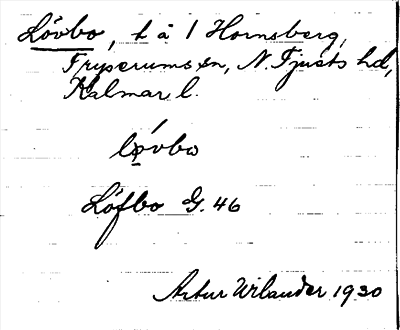 Lövbo, t å 1 Hornsberg,
Fryserums sn, N. Tjusts hd,
Kalmar l.
lǿvbo
Löfbo G. 46
Artur Wilander 1930